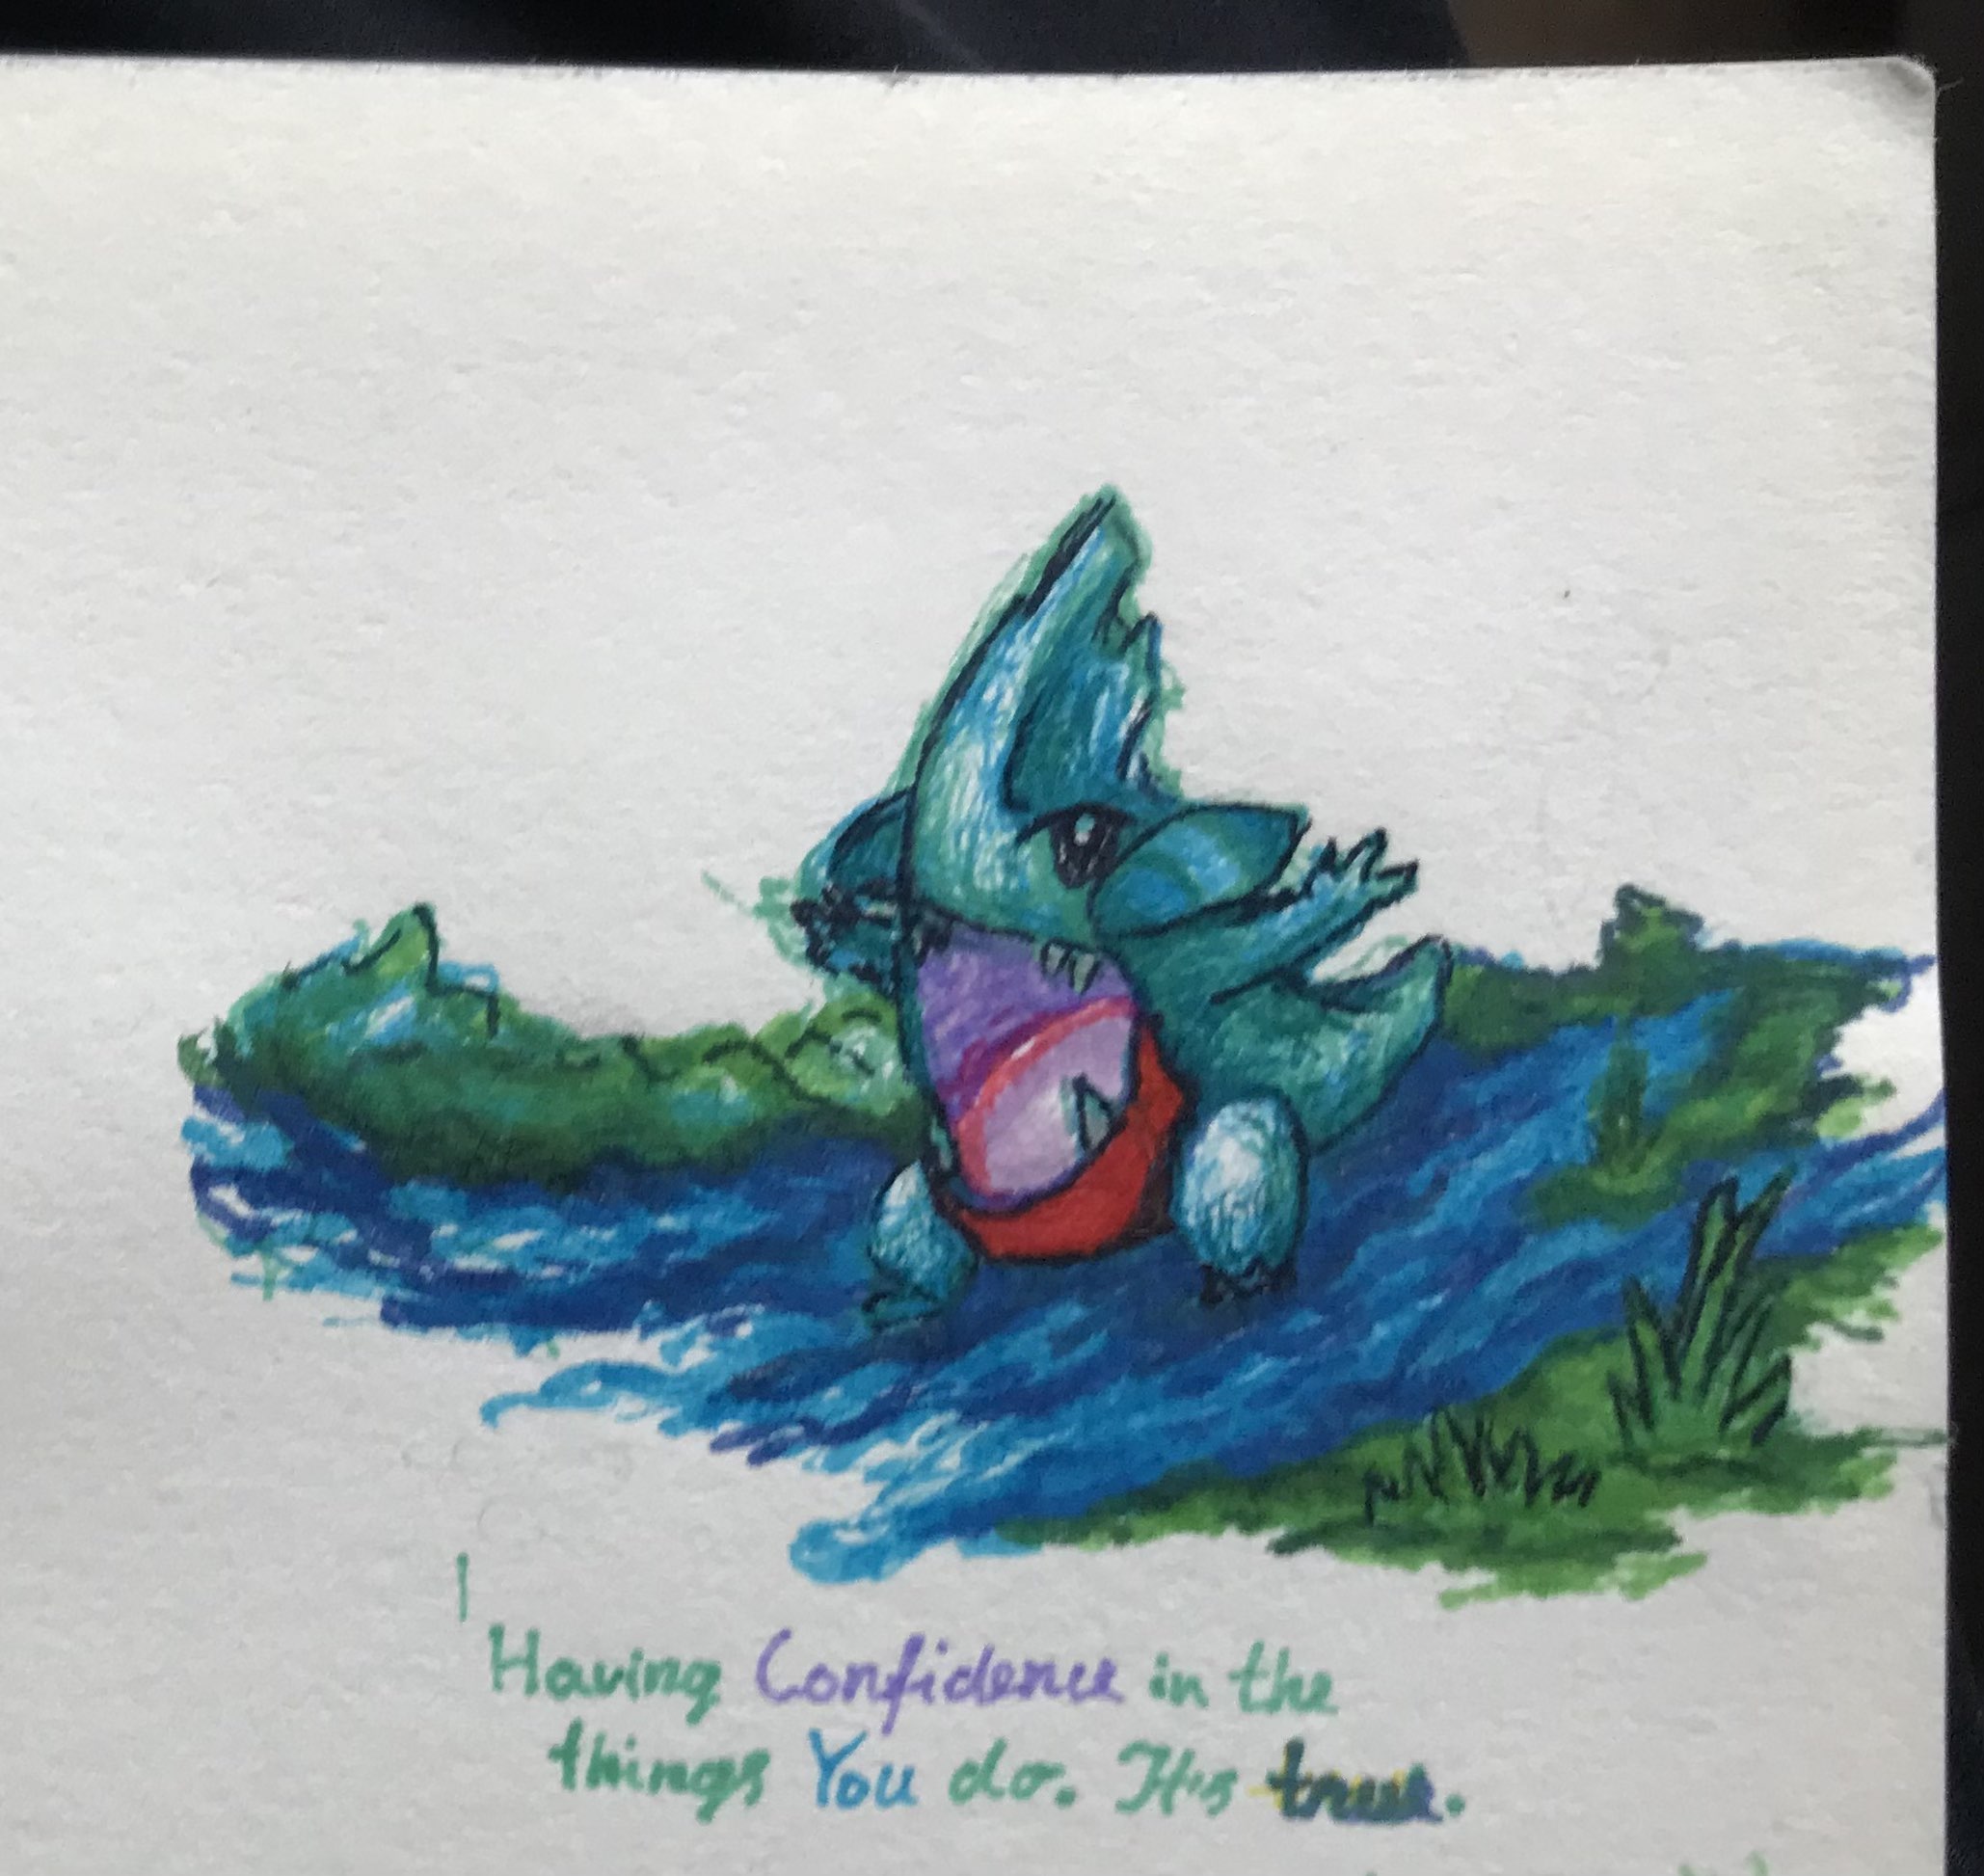 Having Confidence in the
things You do. It's true.